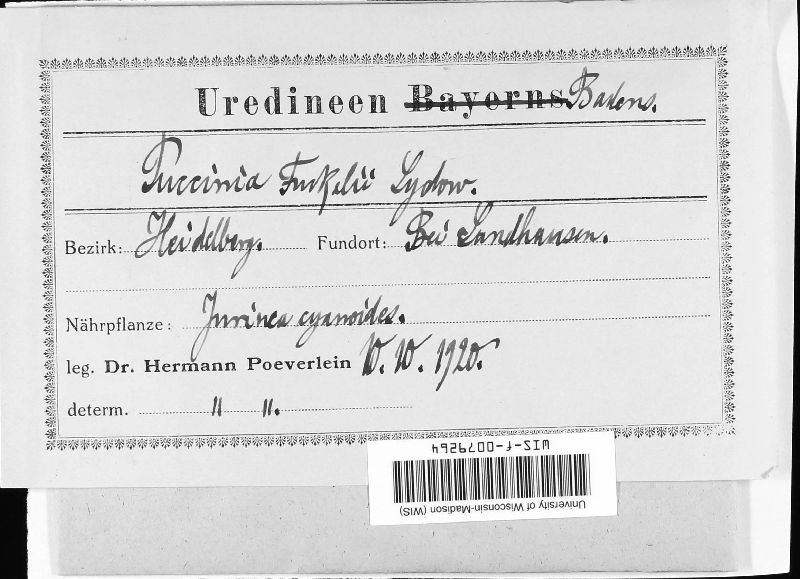 Uredineen Bayerns Badens.
Puccinia Fuckelii Sydow.
Bezirk: Heidelberg. Fundort: Bei Sandhausen.
Nährpflanze: Jurinea cyanoides.
leg. Dr. Hermann Poeverlein 10. 10. 1920.
determ. " ".
WIS-f-0079264
University of Wisconsin-Madison (WIS)